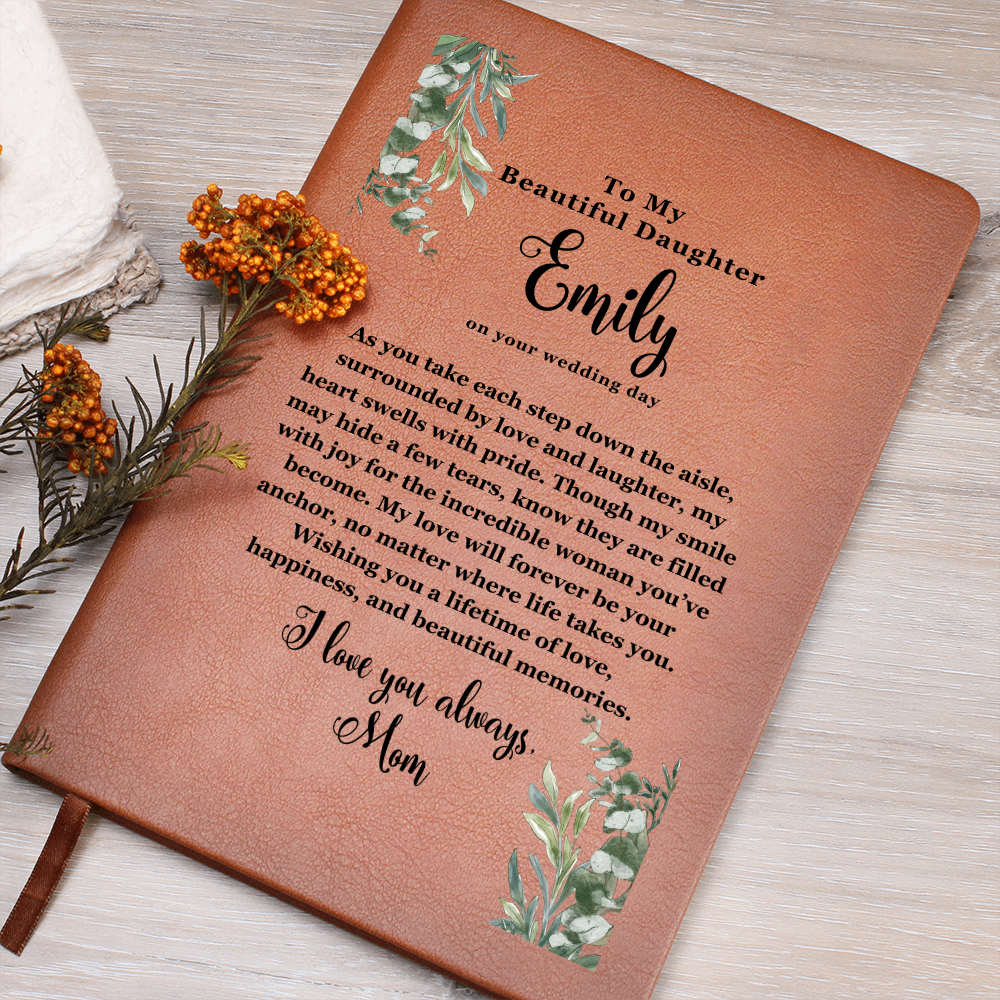 To My
Beautiful Daughter
Emily
on your wedding day
As you take each step down the aisle,
surrounded by love and laughter, my
heart swells with pride. Though my smile
may hide a few tears, know they are filled
with joy for the incredible woman you’ve
become. My love will forever be your
anchor, no matter where life takes you.
Wishing you a lifetime of love,
happiness, and beautiful memories.
I love you always,
Mom